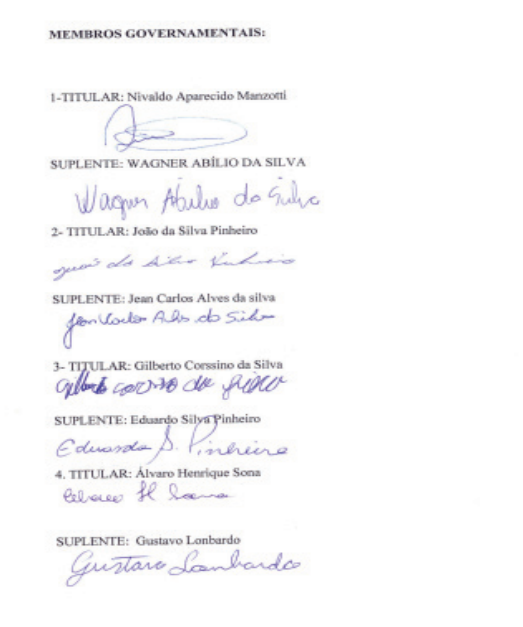 MEMBROS GOVERNAMENTAIS:
1-TITULAR: Nivaldo Aparecido Manzotti
SUPLENTE: WAGNER ABÍLIO DA SILVA
Wagner Abilio da Silva
2- TITULAR: João da Silva Pinheiro
João da Silva Pinheiro
SUPLENTE: Jean Carlos Alves da silva
Jean Carlos Alves da Silva
3- TITULAR: Gilberto Corssino da Silva
Gilberto corssino da Silva
SUPLENTE: Eduardo Silva Pinheiro
Eduardo S. Pinheiro
4. TITULAR: Álvaro Henrique Sona
Álvaro H Sona
SUPLENTE: Gustavo Lonbardo
Gustavo Lonbardo